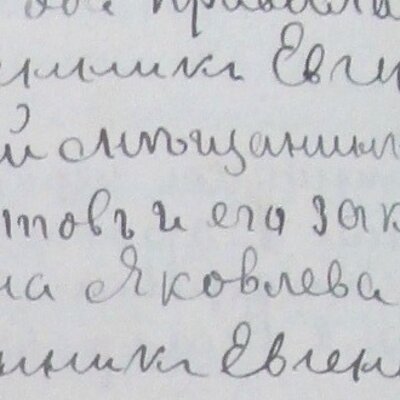 енника Евген
й мѣщанин
товъ и его зак
на Яковлева
енника Евген